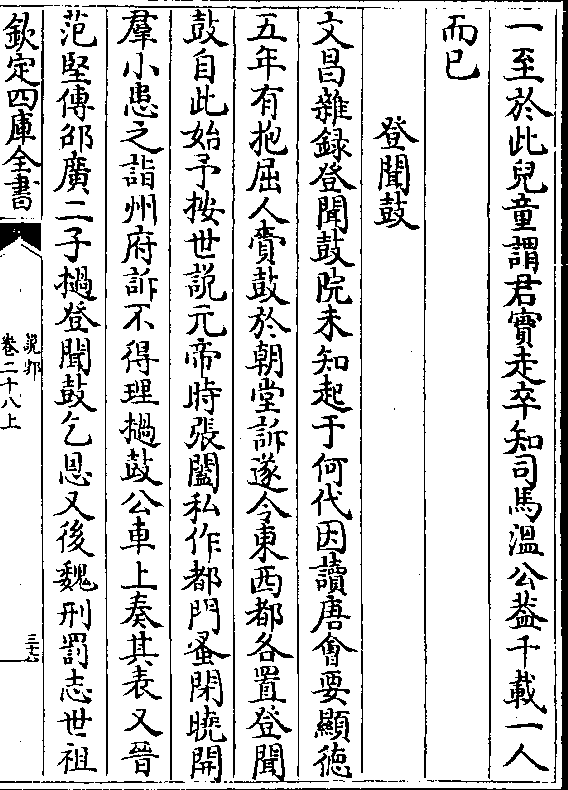 一至於此兒童謂君實走卒知司馬溫公葢千載一人
而已
登聞鼓
文昌雜録登聞鼓院未知起于何代因讀唐會要顯徳
五年有抱屈人賫鼓於朝堂訴遂令東西都各置登聞
鼓自此始予按世説元帝時張闓私作都門蚤閉晚開
羣小患之詣州府訴不得理撾鼓公車上奏其表又晉
范堅傳邵廣二子撾登聞鼓乞恩又後魏刑罰志世祖
欽定四庫全書
說郛
卷二十八上
三十六